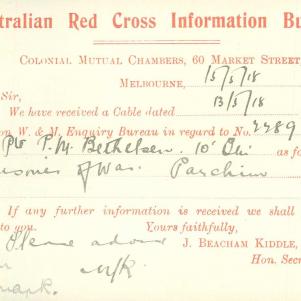 tralian Red Cross Information Bu
COLONIAL MUTUAL CHAMBERS, 60 MARKET STREET
MELBOURNE, 15/5/18
Sir,
We have received a Cable dated 13/5/18
on W. & M. Enquiry Bureau in regard to No. 2289
Pte P. M. Bethelsen. 10' Bn as fo
isoner of War. Parchim
If any further information is received we shall
to you. Yours faithfully,
Please advise J. BEACHAM KIDDLE,
Hon. Secr
mark.